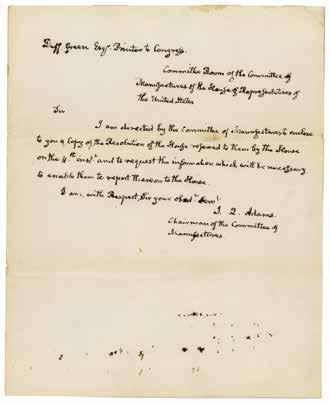 Duff Green Esqr. Printer to Congress.
Committee Room of the Committee of
Manufactures of the House of Representatives of
the United States
Sir
I am directed by the Committee of Manufactures to enclose
to you a Copy of the Resolution of the House referred to them by the House
on the 4th inst. and to request the information which will be necessary
to enable them to report thereon to the House.
I am, with Respect, Sir your obedt. Servt.
J. Q. Adams.
Chairman of the Committee of
Manufactures